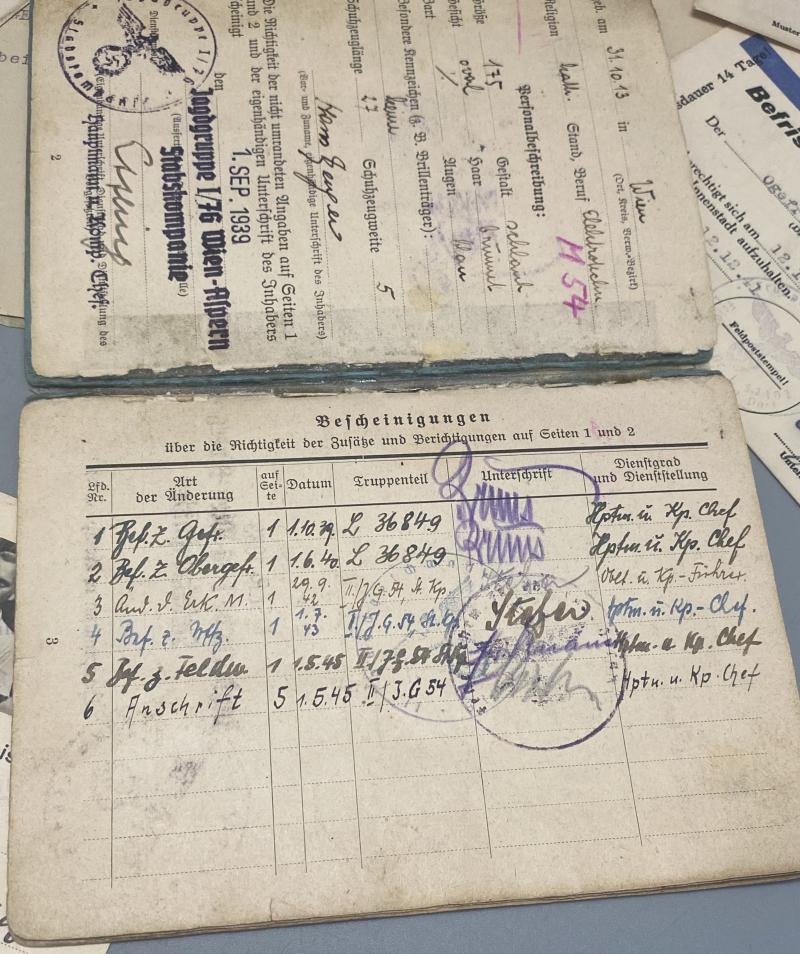 geb. am 31.10.13 in Wien
(Ort, Kreis, Verw.-Bezirk)
Religion kath. Stand, Beruf
M 54
Personalbeschreibung:
Größe 175 Gestalt schlank
Gesicht oval Haar brünett
Bart % Augen blau
Besondere Kennzeichen (z. B. Brillenträger):
keine
Schuhzeuglänge 27 Schuhzeugweite 5
Hans
(Vor- und Zuname, eigenhändige Unterschrift des Inhabers)
Die Richtigkeit der nicht umrandeten Angaben auf Seiten 1
und 2 und der eigenhändigen Unterschrift des Inhabers
bescheinigt
den 1. SEP. 1939
Jagdgruppe I/76 Wien-Aspern
Stabskompanie
Hauptmann u. Komp. Chef.
2
Bescheinigungen
über die Richtigkeit der Zusätze und Berichtigungen auf Seiten 1 und 2
Lfd. Nr. Art der Änderung auf Seite Datum Truppenteil Unterschrift Dienstgrad und Dienststellung
1 Bef. z. Gefr. 1 1.10.39. L 36849 Bruns Hptm. u. Kp. Chef
2 Bef. z. Obergefr. 1 1.6.40 L 36849 Bruns Hptm. u. Kp. Chef
3 Änd. d. Erk. M. 1 29.9.42 II/J.G. 54, St. Kp. Oblt. u. Kp.-Führer
4 Bef. z. Uffz. 1 1.7.43 II/J.G. 54, Hptm. u. Kp-Chef.
5 Bef. z. Feldw. 1 1.5.45 II/J.G. 54 Hptm. u. Kp. Chef
6 Anschrift 5 1.5.45 II/J.G 54 Hptm. u. Kp. Chef
3
Muster
dauer 14 Tage!
Der
12.12.
Feldpoststempel!